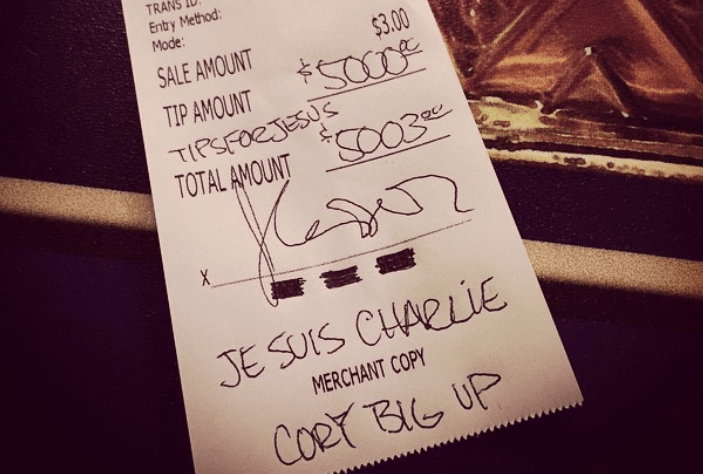 TRANS ID:
Entry Method:
Mode:
$3.00
SALE AMOUNT
$5000.00
TIP AMOUNT
TIPSFORJESUS
$5003.00
TOTAL AMOUNT
X
JE SUIS CHARLIE
MERCHANT COPY
CORY BIG UP